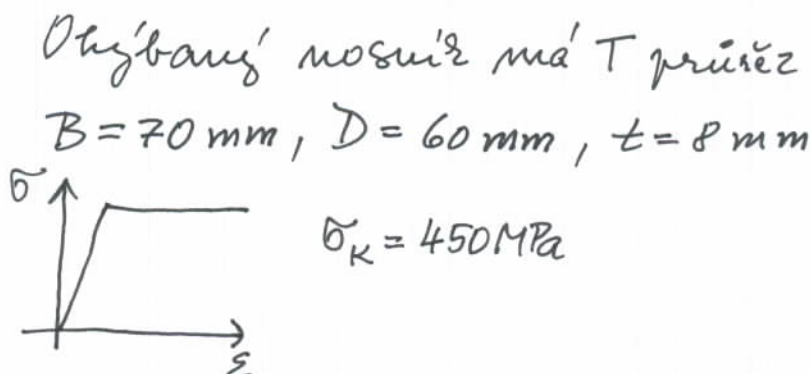 Ohýbaný nosník má T průřez
B = 70 mm, D = 60 mm, t = 8 mm
σ
σK = 450 MPa
ε